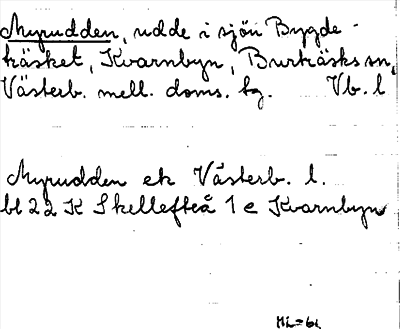 Myrudden, udde i sjön Bygde-
träsket, Kvarnbyn, Burträsks sn,
Västerb. mell. doms. tg. Vb. l
Myrudden ek Västerb. l.
bl 22 K Skellefteå 1 e Kvarnbyn